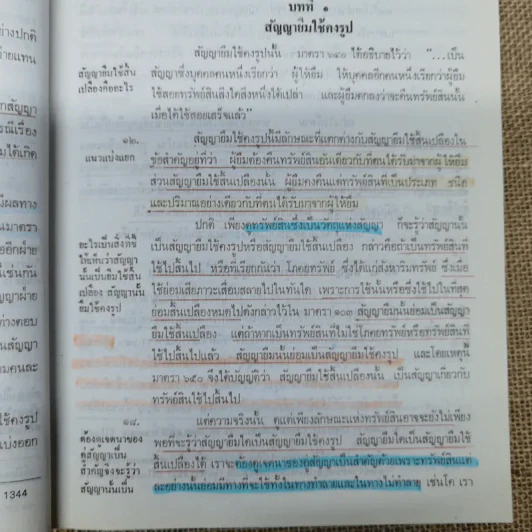 บทที่ ๑
สัญญายืมใช้คงรูป
สัญญายืมใช้คงรูปนั้น มาตรา ๖๔๐ ได้อธิบายไว้ว่า “...เป็น
สัญญาซึ่งบุคคลคนหนึ่งเรียกว่า ผู้ให้ยืม ให้บุคคลอีกคนหนึ่งเรียกว่าผู้ยืม
ใช้สอยทรัพย์สินสิ่งใดสิ่งหนึ่งได้เปล่า และผู้ยืมตกลงว่าจะคืนทรัพย์สินนั้น
เมื่อได้ใช้สอยเสร็จแล้ว”
สัญญายืมใช้สิ้น
เปลืองคืออะไร
๑๒.
แนวแบ่งแยก
สัญญายืมใช้คงรูปนี้มีลักษณะที่แตกต่างกับสัญญายืมใช้สิ้นเปลืองใน
ข้อสำคัญอยู่ที่ว่า ผู้ยืมต้องคืนทรัพย์สินอันเดียวกับที่ตนได้รับมาจากผู้ให้ยืม
ส่วนสัญญายืมใช้สิ้นเปลืองนั้น ผู้ยืมคงคืนแต่ทรัพย์สินที่เป็นประเภท ชนิด
และปริมาณอย่างเดียวกับที่ตนได้รับมาจากผู้ให้ยืม
ปกติ เพียงดูทรัพย์สินซึ่งเป็นวัตถุแห่งสัญญา ก็จะรู้ว่าสัญญานั้น
เป็นสัญญายืมใช้คงรูปหรือสัญญายืมใช้สิ้นเปลือง กล่าวคือถ้าเป็นทรัพย์สินที่
ใช้ไปสิ้นไป หรือที่เรียกกันว่า โภคยทรัพย์ ซึ่งได้แก่สังหาริมทรัพย์ ซึ่งเมื่อ
ใช้ย่อมเสียภาวะเสื่อมสลายไปในทันใด เพราะการใช้นั้นหรือซึ่งใช้ไปในที่สุด
ย่อมสิ้นเปลืองหมดไปดังกล่าวไว้ใน มาตรา ๑๐๓ สัญญานั้นย่อมเป็นสัญญา
ยืมใช้สิ้นเปลือง แต่ถ้าหากเป็นทรัพย์สินที่ไม่ใช่โภคยทรัพย์หรือทรัพย์สินที่
ใช้ไปสิ้นไปแล้ว สัญญานั้นย่อมเป็นสัญญายืมใช้คงรูป และโดยเหตุนี้
มาตรา ๖๕๐ จึงได้บัญญัติว่า สัญญายืมใช้สิ้นเปลืองนั้น เป็นสัญญาเกี่ยวกับ
ทรัพย์สินใช้ไปสิ้นไป
อะไรเป็นสิ่งที่ชี้
ให้เห็นว่าสัญญา
นั้นเป็นยืมใช้สิ้น
เปลือง สัญญานั้น
ยืมใช้คงรูป
๑๘.
ต้องดูเจตนาของ
คู่สัญญาเป็น
สำคัญจึงจะรู้ว่า
สัญญานั้นเป็น
แต่ความจริงนั้น ดูแต่เพียงลักษณะแห่งทรัพย์สินอาจจะยังไม่เพียง
พอที่จะรู้ว่าสัญญาใดเป็นสัญญายืมใช้คงรูป สัญญาใดเป็นสัญญายืมใช้
สิ้นเปลืองได้ เราจะต้องดูเจตนาของคู่สัญญาเป็นสำคัญด้วยเพราะทรัพย์สินแต่
ละอย่างนั้นย่อมมีทางที่จะใช้ทั้งในทางทำลายและในทางไม่ทำลาย เช่นโค เรา
1344